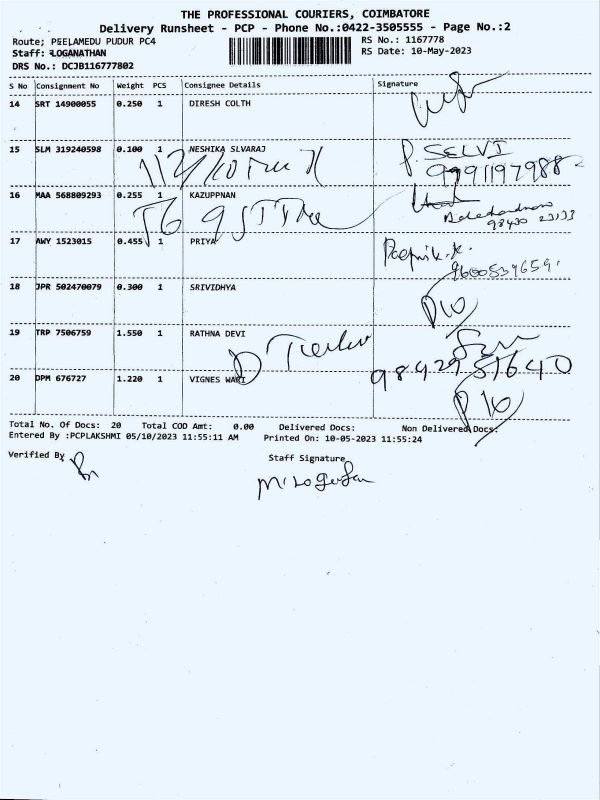 THE PROFESSIONAL COURIERS, COIMBATORE
Delivery Runsheet - PCP - Phone No.:0422-3505555 - Page No.:2
Route; PEELAMEDU PUDUR PC4
RS No.: 1167778
Staff: LOGANATHAN
RS Date: 10-May-2023
DRS No.: DCJB116777802
S No Consignment No Weight PCS Consignee Details Signature
14 SRT 14900055 0.250 1 DIRESH COLTH
15 SLM 319240598 0.100 1 NESHIKA SLVARAJ P. SELVI
9991197988
16 MAA 568809293 0.255 1 KAZUPPNAN
17 AWY 1523015 0.455 1 PRIYA
9600539659.
18 JPR 502470079 0.300 1 SRIVIDHYA
19 TRP 7506759 1.550 1 RATHNA DEVI
9842951640
20 DPM 676727 1.220 1 VIGNES WARI
Total No. Of Docs: 20 Total COD Amt: 0.00 Delivered Docs: Non Delivered Docs:
Entered By :PCPLAKSHMI 05/10/2023 11:55:11 AM Printed On: 10-05-2023 11:55:24
Verified By
Staff Signature